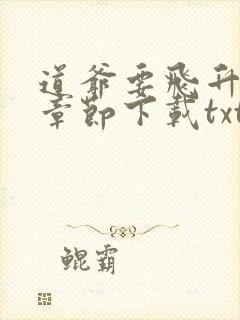 道爷要飛升
章節下載txt
鲲霸